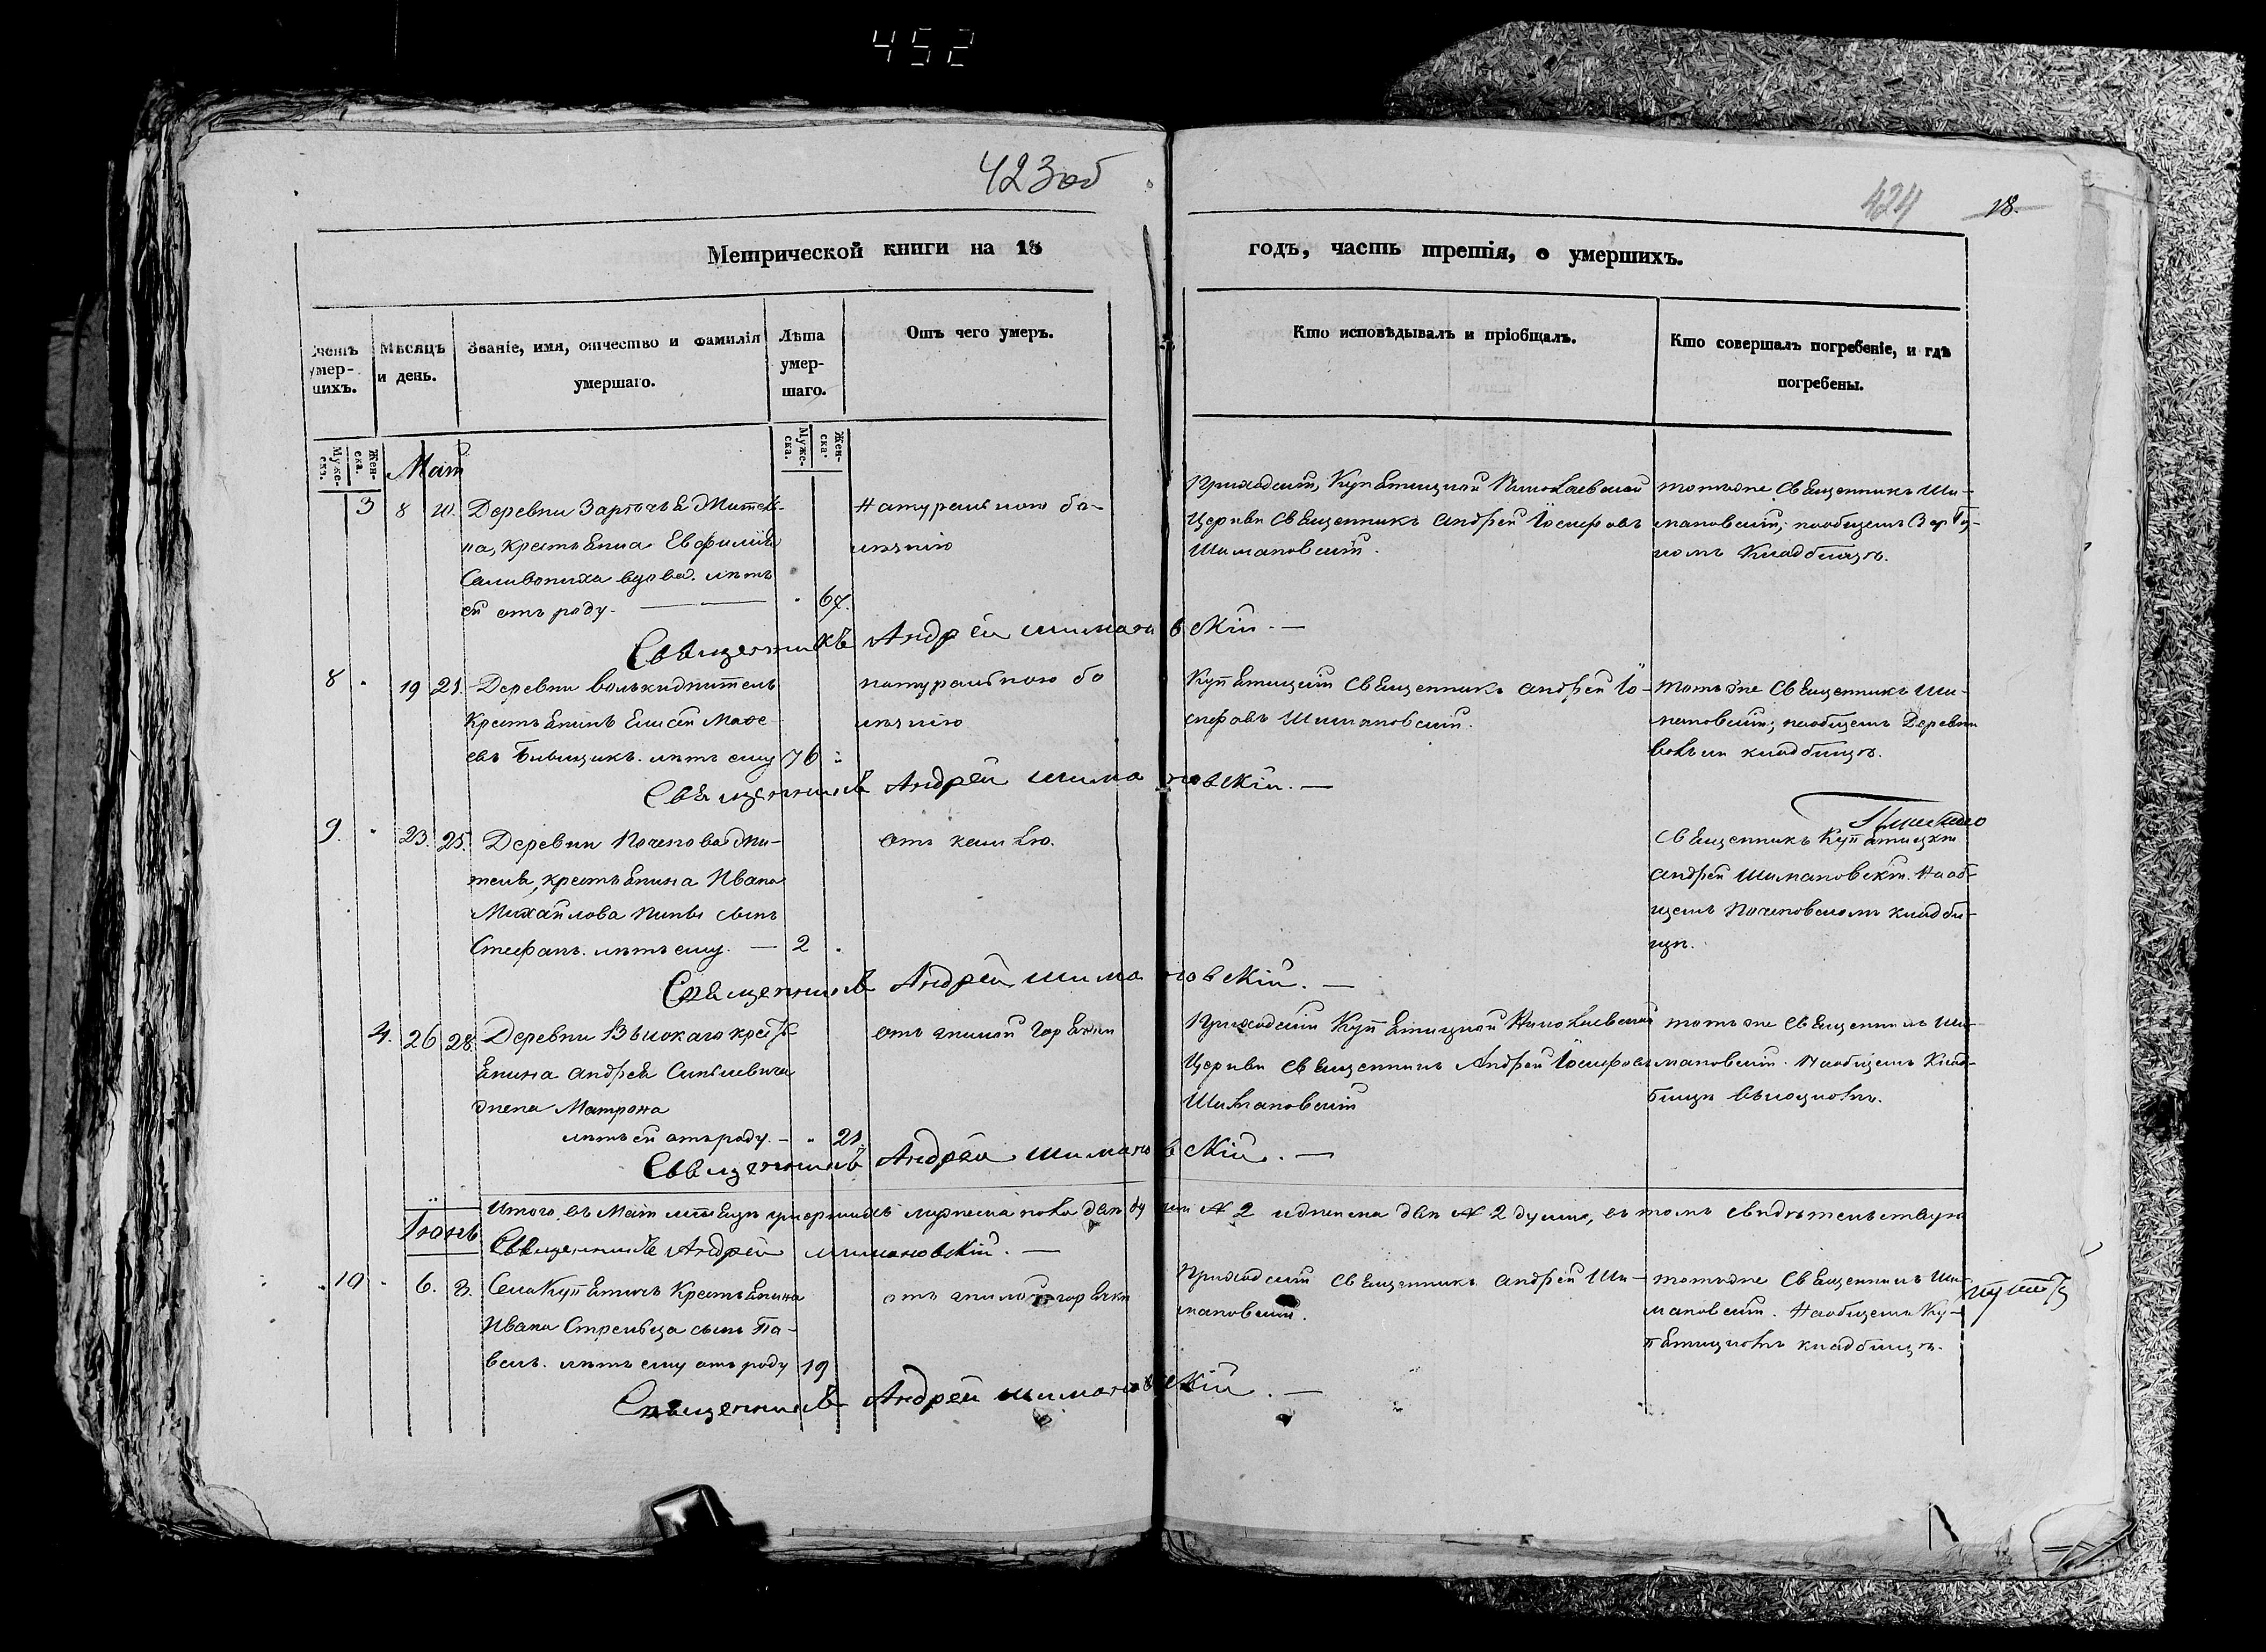 452
423об
424 18.
Метрической книги на 18 годъ, часть третія, о умершихъ.
Счетъ умер-шихъ.
Мѣсяцъ и день.
Званіе, имя, отчество и фамилія умершаго.
Лѣта умер-шаго.
Отъ чего умеръ.
Кто исповѣдывалъ и пріобщалъ.
Кто совершалъ погребеніе, и гдѣ погребены.
Муже-ска.
Жен-ска.
Муже-ска.
Жен-ска.
Маій
3 8 10. Деревни Зарѣчья Жител-
ка, крестьянка Евфимія
вдова. лѣтъ
ей отъ роду. 67.
Натуральною бо-
лѣзнію
Приходскій Купятицкой Николаевской
Церкви Священникъ Андрей Іосифовъ
Шимановскій.
тотъ же Священникъ Ши-
мановскій; на общемъ
кладбищѣ.
Священникъ Андрей Шимановскій. —
8 19 21. Деревни житель
Крестьянинъ Елисей Мате-
евъ лѣтъ ему 76
натуральною бо
лѣзнію
Купятицкій Священникъ Андрей Іо-
сифовъ Шимановскій.
тотъ же Священникъ Ши-
мановскій; на общемъ Деревни
кладбищѣ.
Священникъ Андрей Шимановскій. —
9. 23. 25. Деревни Почапова Жи-
теля, крестьянина Ивана
Михайлова сынъ
Стефанъ. лѣтъ ему. — 2
отъ кашлю.
Священникъ Купятицкій
Андрей Шимановскій. На об-
щемъ Почаповскомъ кладби-
щѣ.
Священникъ Андрей Шимановскій. —
4. 26 28. Деревни Высокаго крест-
янина Андрея
жена Матрона
лѣтъ ей отъ роду. — 21.
отъ гнилой горячки
Приходскій Купятицкой Николаевской
Церкви Священникъ Андрей Іосифовъ
Шимановскій
тотъ же Священникъ Ши-
мановскій. На общемъ Клад-
бищѣ
Священникъ Андрей Шимановскій. —
Итого въ Маіи мѣсяцѣ умершихъ мужеска пола двѣ души № 2 и женска двѣ № 2 души, въ томъ свидѣтельствую
Іюнь
Священникъ Андрей Шимановскій. —
10 6. 8. Села Купятичъ Крестьянина
Ивана Стрельца сынъ Па-
велъ. лѣтъ ему отъ роду 19
отъ гнилой горячки
Приходскій Священникъ Андрей Ши-
мановскій.
тотъ же Священникъ Ши-
мановскій. На общемъ Ку-
пятицкомъ кладбищѣ.
Священникъ Андрей Шимановскій. —